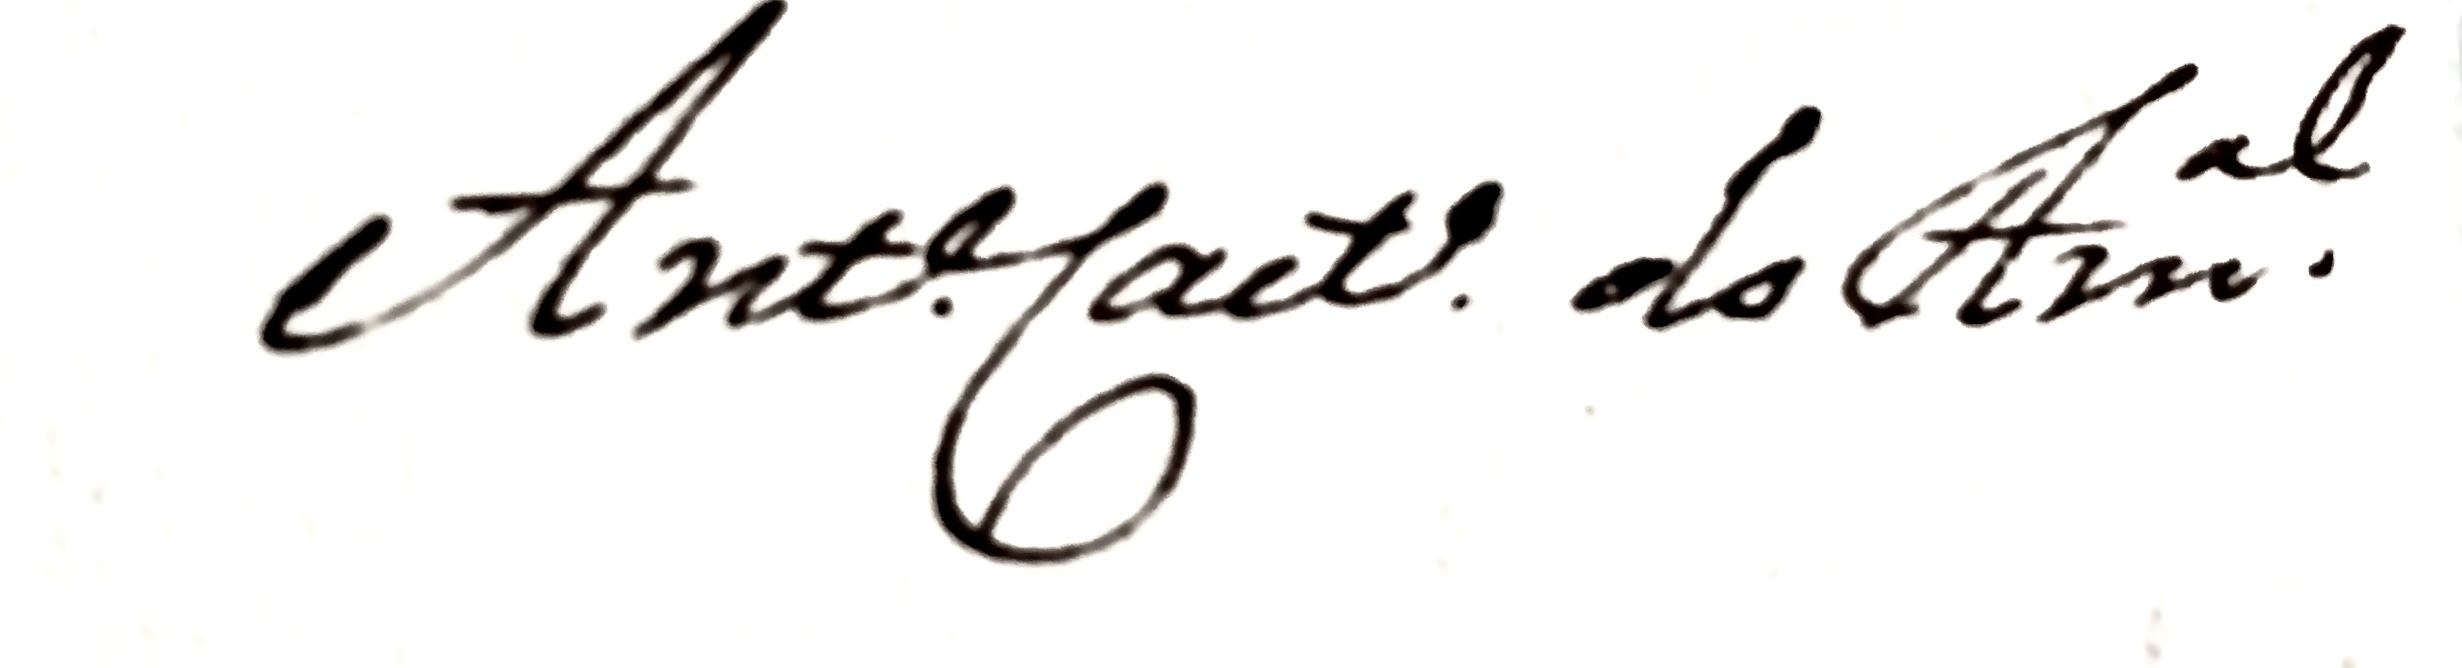 Ant.º Caet.º do Am.al